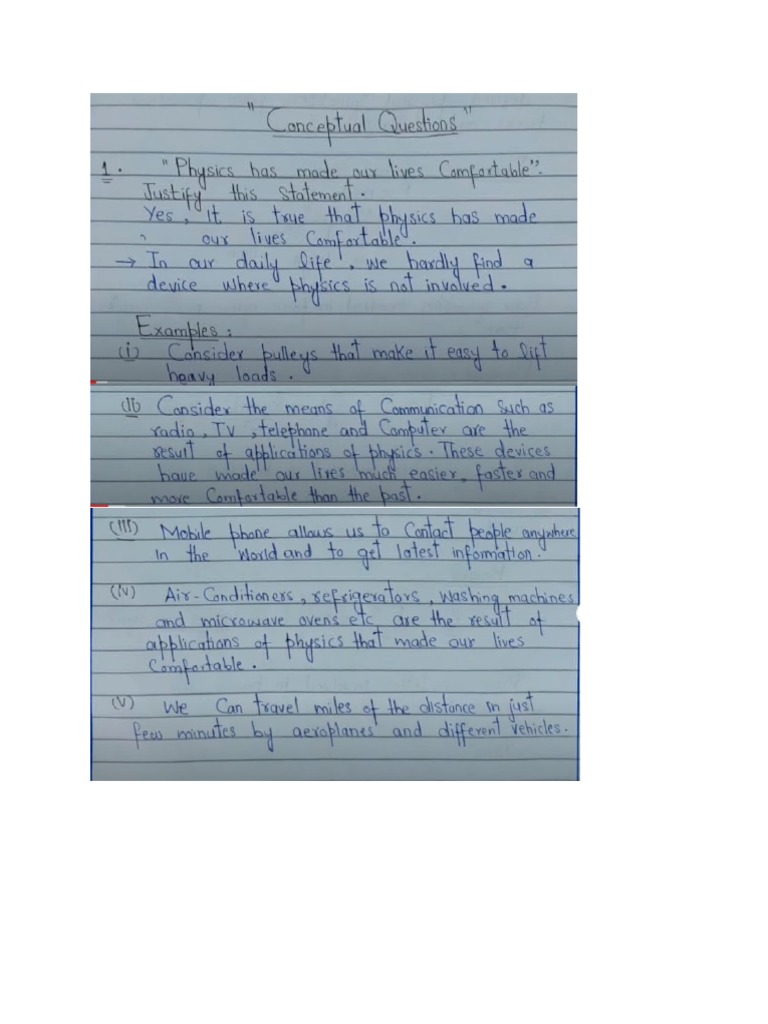 "Conceptual Questions"
1. "Physics has made our lives Comfortable".
Justify this Statement.
Yes, It is true that physics has made
our lives Comfortable.
→ In our daily life, we hardly find a
device where physics is not involved.
Examples:
(i) Consider pulleys that make it easy to lift
heavy loads.
(II) Consider the means of Communication Such as
radio, TV, telephone and Computer are the
result of applications of physics. These devices
have made our lives much easier, faster and
more Comfortable than the past.
(III) Mobile phone allows us to Contact people anywhere
in the World and to get latest information.
(IV) Air-Conditioners, refrigerators, washing machines
and microwave ovens etc, are the result of
applications of physics that made our lives
Comfortable.
(V) We Can travel miles of the distance in just
few minutes by aeroplanes and different vehicles.